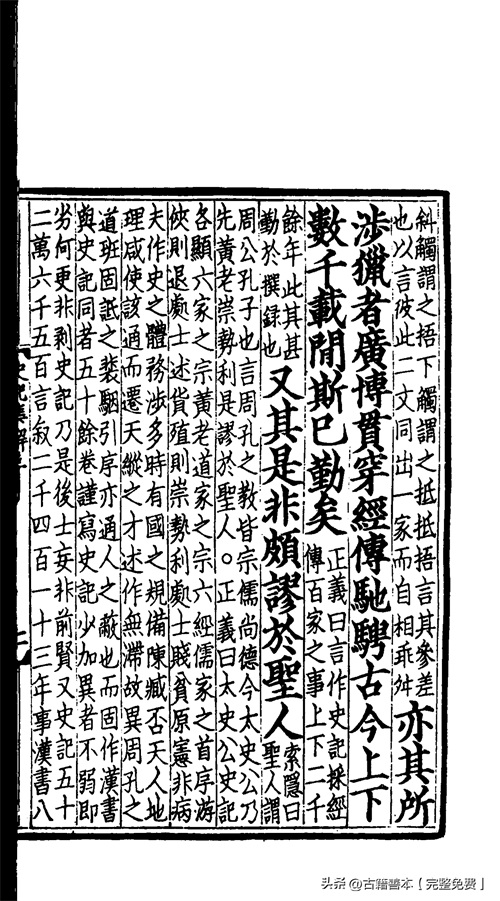 斜觸謂之捂下觸謂之抵抵捂言其參差
也以言彼此二文同出一家而自相乖舛
亦其所
涉獵者廣博貫穿經傳馳騁古今上下
數千載閒斯已勤矣
正義曰言作史記採經
傳百家之事上下二千
餘年此其甚
勤於撰録也
又其是非頗謬於聖人
索隱曰
聖人謂
周公孔子也言周孔之教皆宗儒尚德今太史公乃
先黃老崇勢利是謬於聖人。正義曰太史公史記
各顯六家之宗黃老道家之宗六經儒家之首序游
俠則退處士述貨殖則崇勢利處士賤貧原憲非病
夫作史之體務涉多時有國之規備陳臧否天人地
理咸使該通而遷天縱之才述作無滯故異周孔之
道班固詆之裴駰引序亦通人之蔽也而固作漢書
與史記同者五十餘卷謹寫史記少加異者不弱即
劣何更非剥史記乃是後士妄非前賢又史記五十
二萬六千五百言叙二千四百一十三年事漢書八
头条 @古籍善本【完整免费】